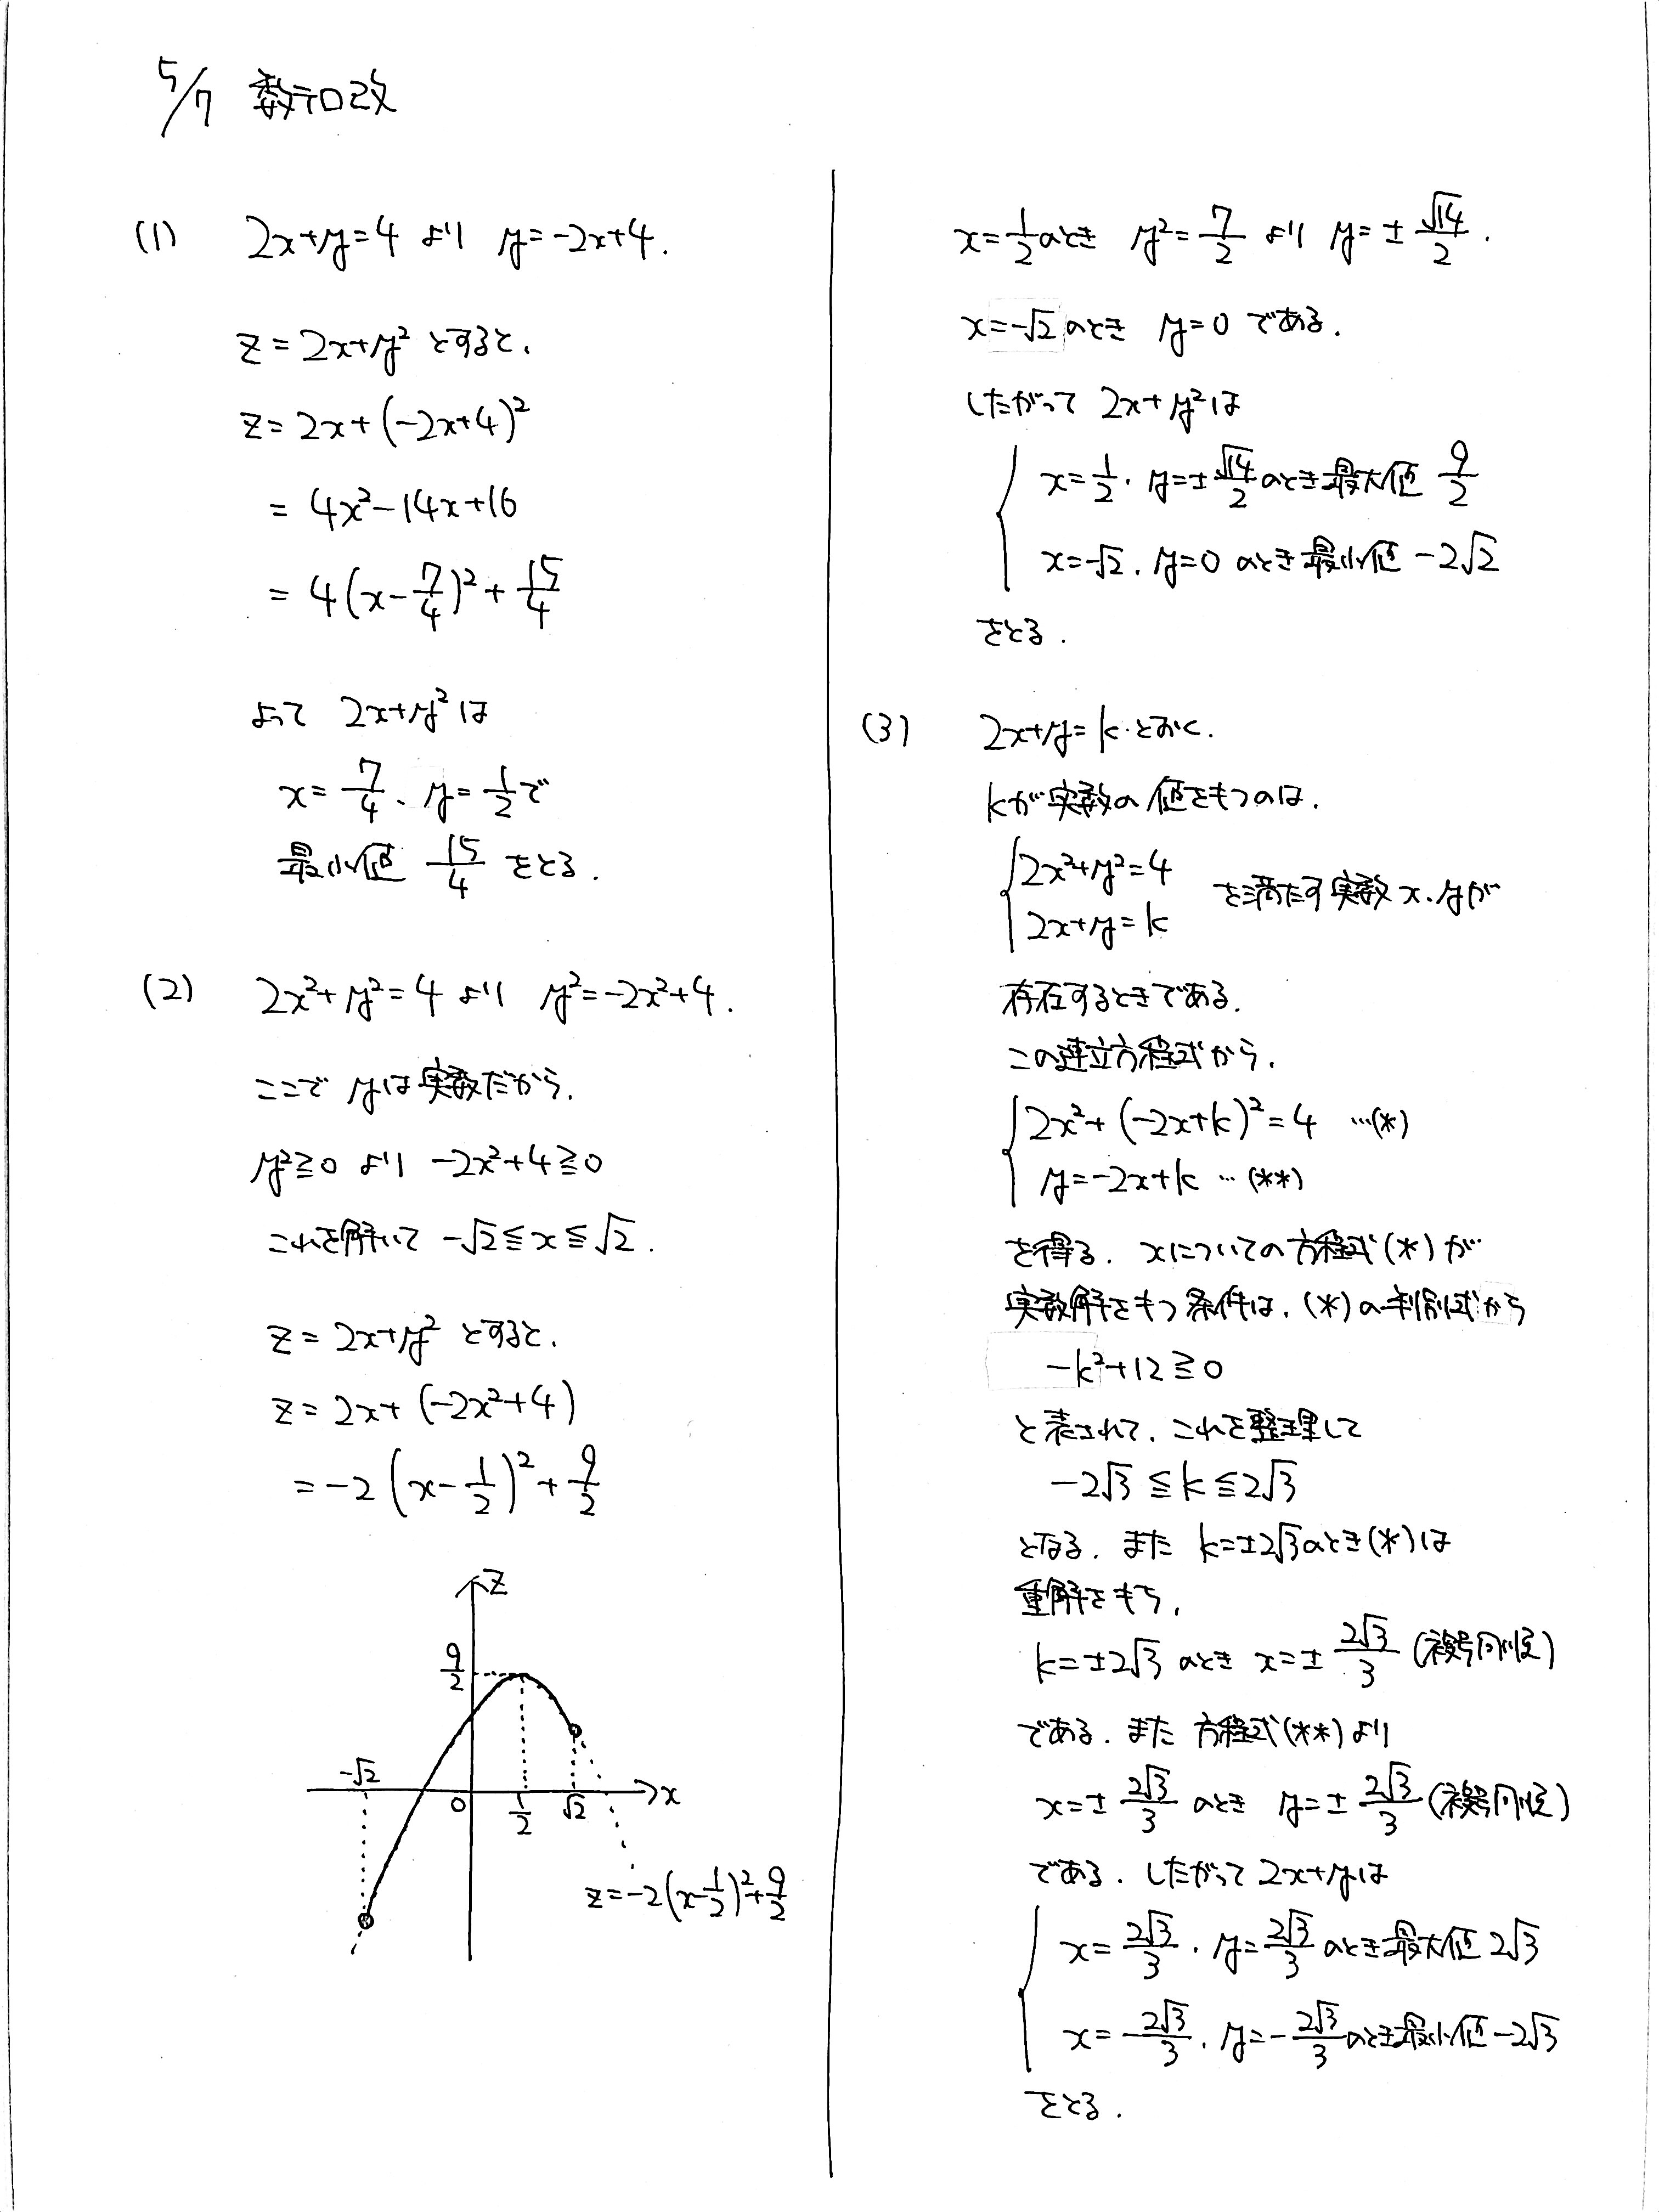 5/7 数テロ改
(1) 2x+y=4 より y=-2x+4.
z=2x+y² とすると、
z=2x+(-2x+4)²
=4x²-14x+16
=4(x-7/4)²+15/4
よって 2x+y² は
x=7/4、y=1/2で
最小値 15/4 をとる.
(2) 2x²+y²=4 より y²=-2x²+4.
ここで yは実数だから、
y²≧0 より -2x²+4≧0
これを解いて -√2≦x≦√2.
z=2x+y² とすると、
z=2x+(-2x²+4)
=-2(x-1/2)²+9/2
z
9/2
-√2 0 1/2 √2 x
z=-2(x-1/2)²+9/2
x=1/2のとき y²=7/2 より y=±√14/2.
x=-√2のとき y=0 である.
したがって 2x+y²は
x=1/2、y=±√14/2のとき最大値 9/2
x=-√2、y=0 のとき最小値 -2√2
をとる.
(3) 2x+y=k とおく.
kが実数の値をもつのは、
{2x²+y²=4
2x+y=k を満たす実数x、yが
存在するときである.
この連立方程式から、
{2x²+(-2x+k)²=4 …(*)
y=-2x+k …(**)
を得る. xについての方程式(*)が
実数解をもつ条件は、(*)の判別式から
-k²+12≧0
と表されて、これを整理して
-2√3≦k≦2√3
となる. また k=±2√3のとき(*)は
重解をもち、
k=±2√3 のとき x=±2√3/3 (複号同順)
である. また 方程式(**)より
x=±2√3/3 のとき y=±2√3/3 (複号同順)
である. したがって 2x+yは
x=2√3/3、y=2√3/3のとき最大値 2√3
x=-2√3/3、y=-2√3/3のとき最小値 -2√3
をとる.